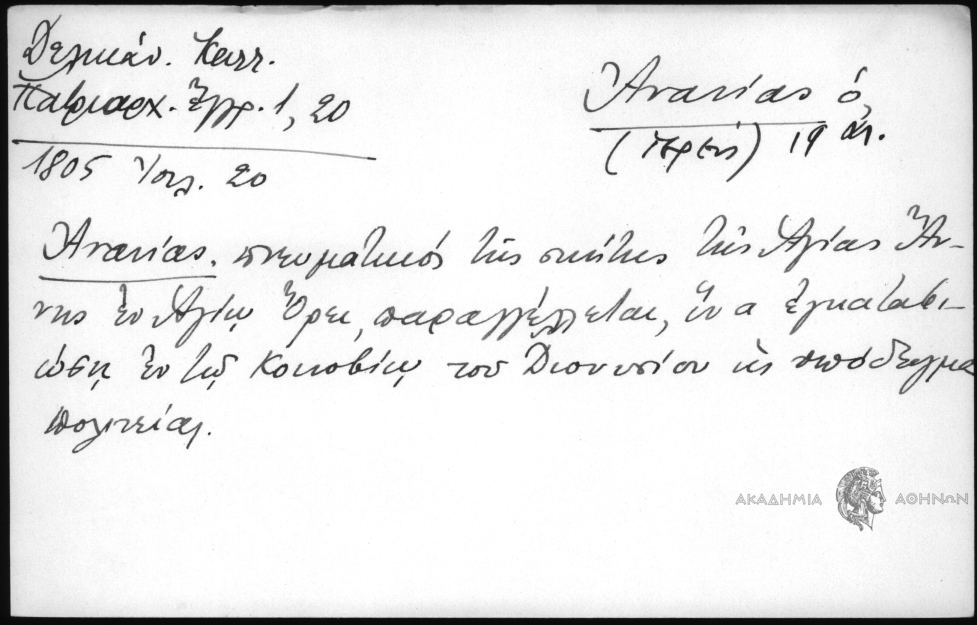 Δελικάν. Κατ.
Πατριαρχ. Ἐγγρ. 1, 20
1805 Ἰουλ. 20
Ἀνανίας ὁ,
(Ἱερεύς) 19 αἰ.
Ἀνανίας. πνευματικός τῆς σκήτης τῆς Ἁγίας Ἄν-
νης ἐν Ἁγίῳ Ὄρει, παραγγέλλεται, ἵνα ἐγκαταβι-
ώσῃ ἐν τῷ Κοινοβίῳ τοῦ Διονυσίου ὡς ὑπόδειγμα
πολιτείας.
ΑΚΑΔΗΜΙΑ ΑΘΗΝΩΝ